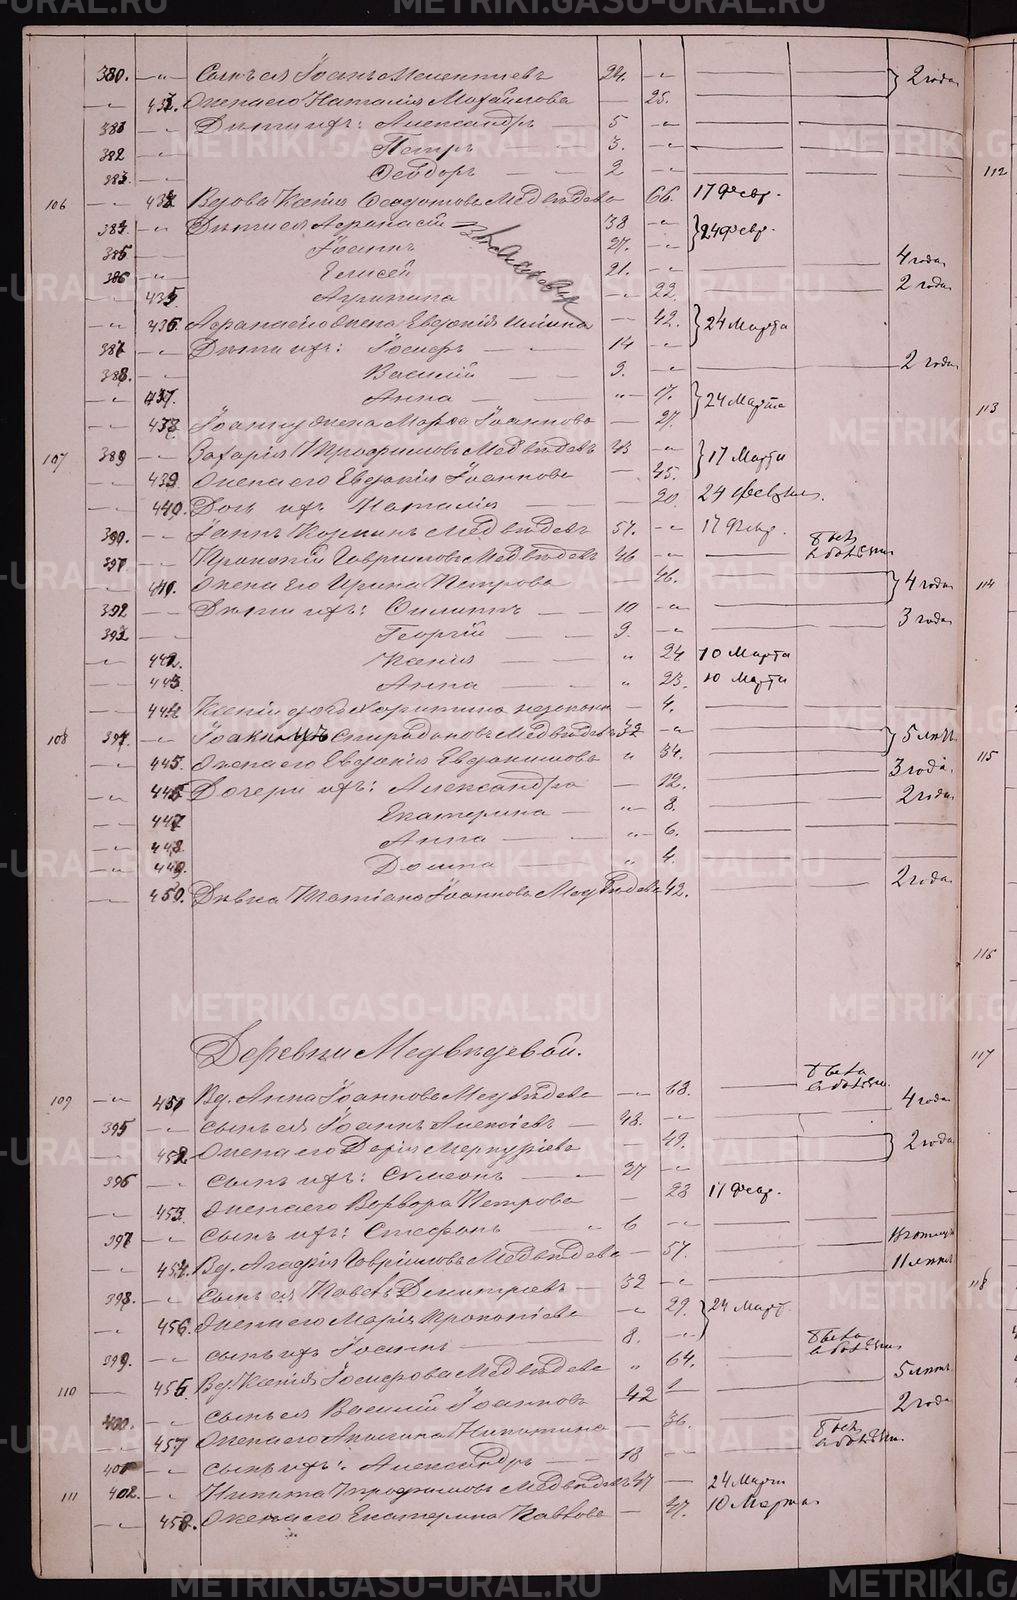 380. Сынъ ея Іоаннъ Мелентиевъ 24. 2 года
432. Жена его Наталія Михайлова 25.
381 Дѣти ихъ: Александръ 5
382 Петръ 3.
383. Ѳеодоръ 2
106 433 Вдова Ксенія Ѳеодотова Медвѣдева 66. 17 Февр.
384. Дѣти ея Аѳанасій 38 24 Февр.
385 Іоаннъ 27.
386 Елисей 21. 4 года
435. Агрипина 22. 2 года
436. Аѳанасія жена Евдокія 42. 24 Марта
387 Дѣти ихъ: Іосифъ 14
388. Василій 9. 2 года
437. Анна 17. 24 Марта
438 Іоанну жена Марѳа Іоаннова 27.
107 389 Захарія Трофимовъ Медвѣдевъ 43 17 Марта
439. Жена его Евдокія Іоаннова 45.
440. Дочь ихъ Наталія 20. 24 Февраля.
390. Іоаннъ Медвѣдевъ 57. 17 Февр.
391. Прокопій Гавриловъ Медвѣдевъ 46 былъ в болѣзни
441. Жена его Ирина Петрова 46. 4 года
392 Дѣти ихъ: Филиппъ 10 3 года
393 Георгій 9.
442. Ксенія 24 10 Марта
443. Анна 23. 10 Марта
444 Ксеніи дочь Харитина незаконн 4.
108 394. Іоакимъ Спиридоновъ Медвѣдевъ 32 5 лѣтъ
445. Жена его Евдокія Евдокимова 34. 3 года.
446 Дочери ихъ: Александра 12. 2 года.
447 Екатерина 8.
448. Анна 6.
449. Домна 4.
450. Дѣвка Татіана Іоаннова Медвѣдева 42. 2 года
Деревни Медвѣдевой.
109 451 Вд. Анна Іоаннова Медвѣдева 68. была в болѣзни.
395 Сынъ ея Іоаннъ Алексіевъ 48. 4 года
452 Жена его Дарія Меркуріева 49. 2 года
396 Сынъ ихъ: Симеонъ 27
453. Жена его Варвара Петрова 23 17 Февр.
397 Сынъ ихъ: Стефанъ 6
454. Вд. Агафія Гаврилова Медвѣдева 57. 11 лѣтъ
398. Сынъ ея Павелъ Димитріевъ 32
456. Жена его Марія Прокопіева 29. 24 Март.
399. Сынъ ихъ Іоаннъ 8.
110 455. Вд. Ксенія Іосифова Медвѣдева 64. была в болѣзни
400. Сынъ ея Василій Іоанновъ 42 5 лѣтъ
457 Жена его Никитина 36. 2 года
401 Сынъ ихъ: Александръ 18 былъ в болѣзни.
111 402. Никита Трофимовъ Медвѣдевъ 47 24 Марта
458. Жена его Екатерина Павлова 47. 10 Марта
112
113
114
115
116
117
118
METRIKI.GASO-URAL.RU